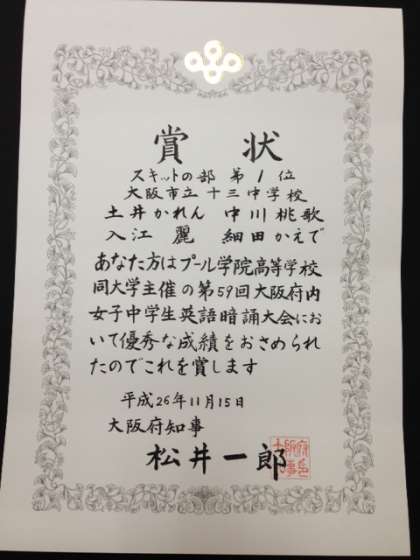 賞状
スキットの部 第1位
大阪市立 十三中学校
土井かれん 中川桃歌
入江 麗 細田かえで
あなた方はプール学院高等学校
同大学主催の第59回大阪府内
女子中学生英語暗誦大会にお
いて優秀な成績をおさめられ
たのでこれを賞します
平成26年11月15日
大阪府知事
松井一郎